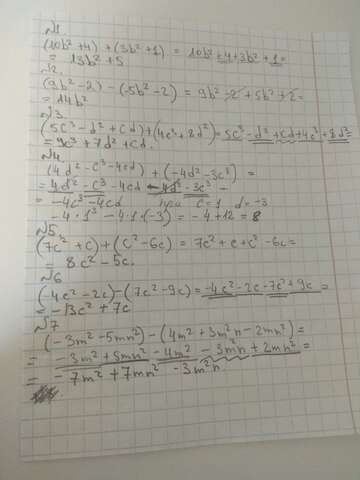 №1
(10b² + 4) + (3b² + 1) = 10b² + 4 + 3b² + 1 =
= 13b² + 5
№2.
(9b² - 2) - (-5b² - 2) = 9b² - 2 + 5b² + 2 =
= 14b²
№3.
(5c³ - d² + cd) + (4c³ + 8d²) = 5c³ - d² + cd + 4c³ + 8d² =
= 9c³ + 7d² + cd.
№4
(4d² - c³ - 4cd) + (-4d² - 3c³) =
= 4d² - c³ - 4cd - 4d² - 3c³ =
= -4c³ - 4cd при c = 1 d = -3
-4 · 1³ - 4 · 1 · (-3) = -4 + 12 = 8
№5.
(7c² + c) + (c² - 6c) = 7c² + c + c² - 6c =
= 8c² - 5c.
№6
(-4c² - 2c) - (7c² - 9c) = -4c² - 2c - 7c² + 9c =
= -13c² + 7c
№7
(-3m² - 5mn²) - (4m² + 3m²n - 2mn²) =
= -3m² + 5mn² - 4m² - 3m²n + 2mn² =
= -7m² + 7mn² - 3m²n